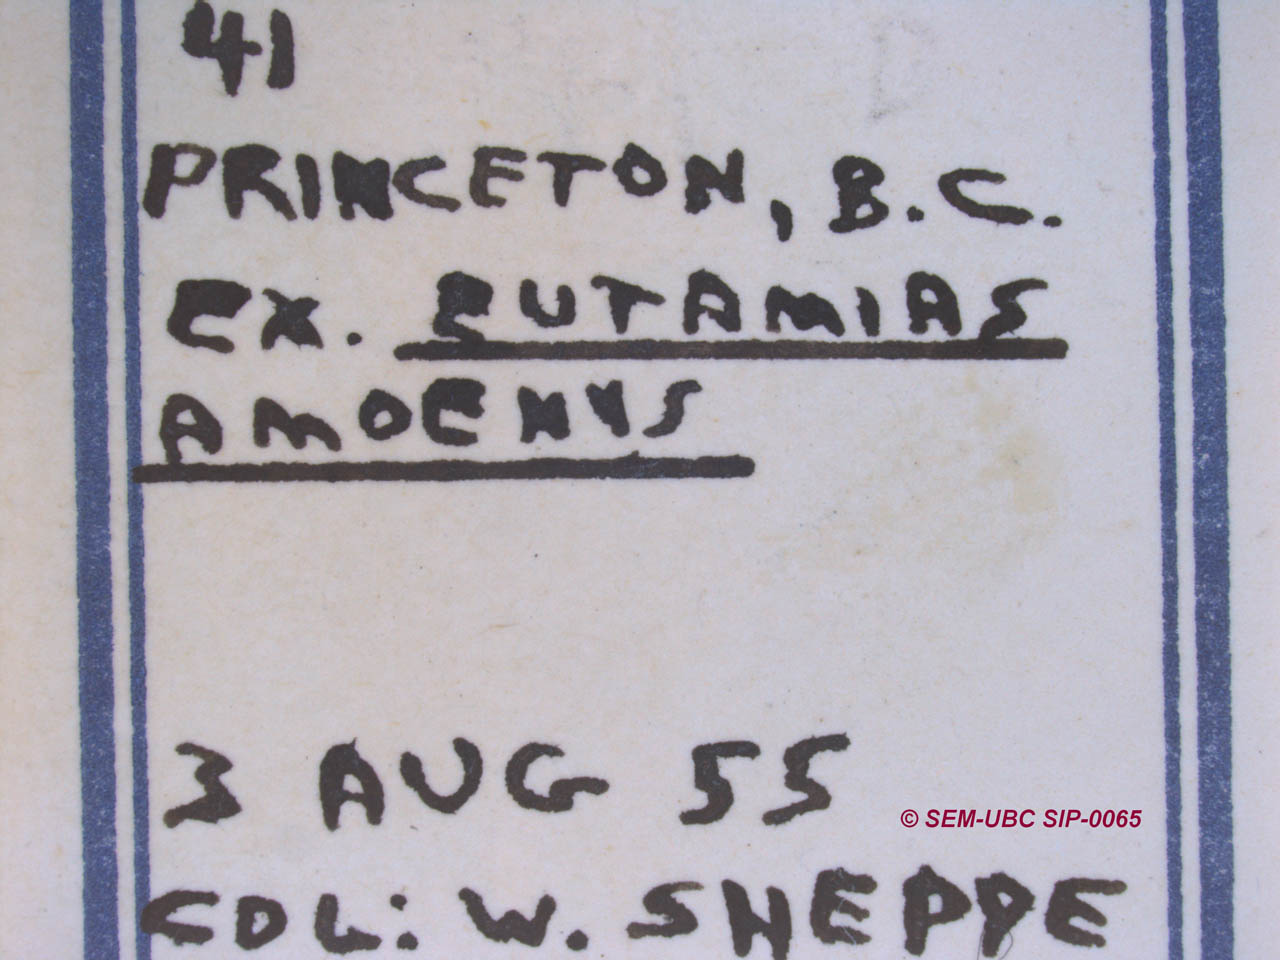 41
PRINCETON, B.C.
EX. EUTAMIAS
AMOENUS
3 AUG 55
© SEM-UBC SIP-0065
COL: W. SHEPPE